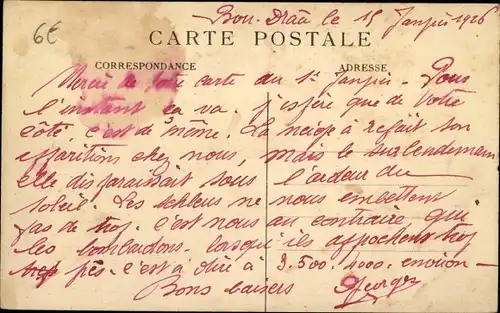 6€
Bou-Draâ le 15 Janvier 1926
CARTE POSTALE
CORRESPONDANCE
ADRESSE
Merci de votre carte du 1er Janvier - Pour
l'instant ça va. j'espère que de votre
côté, c'est de même. La neige a refait son
apparition chez nous, mais le surlendemain
elle disparaissait sous l'ardeur du
soleil. Les ne nous embêtent
pas de trop. c'est nous au contraire, qui
les bombardons. lorsqu'ils approchent trop
près. c'est à dire à 3.500. 4000. environ -
Bons baisers Georges